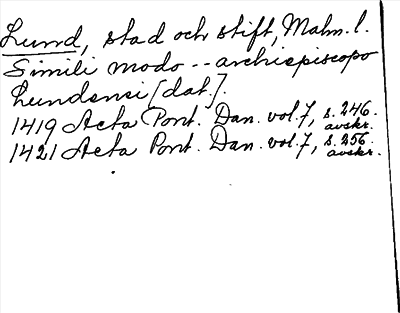 Lund, stad och stift, Malm. l.
Simili modo -- archiepiscopo
Lundensi [dat.].
1419 Acta Pont. Dan. vol. 7, s. 246. avskr.
1421 Acta Pont. Dan. vol. 7, s. 256. avskr.